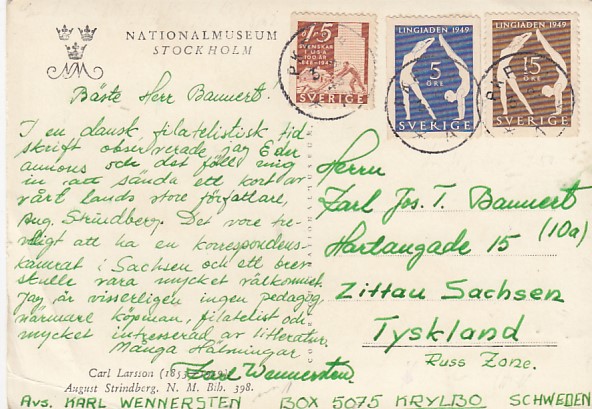 NATIONALMUSEUM
STOCKHOLM
Bäste Herr Bannert.
I en dansk, filatelistisk tid
skrift observerade jag Eder
annons och det föll mig
in att sända ett kort av
vårt lands store författare,
Aug. Strindberg. Det vore tre-
vligt att ha en korrespondens-
kamrat i Sachsen och ett brev
skulle vara mycket välkommet.
Jag är visserligen ingen pedagog,
närmare köpman, filatelist och
mycket intresserad av litteratur.
Många Hälsningar
Karl Wennersten
Carl Larsson (1853
August Strindberg. N. M. Bib. 398.
15
SVENSKAR
I USA
100 ÅR
SVERIGE
LINGIADEN 1949
5
ÖRE
SVERIGE
LINGIADEN 1949
15
ÖRE
SVERIGE
PKP
Herrn
Karl Jos. T. Bannert
Hartangade 15 (10a)
Zittau Sachsen
Tyskland
Russ Zone.
Avs. KARL WENNERSTEN BOX 5075 KRYLBO SCHWEDEN